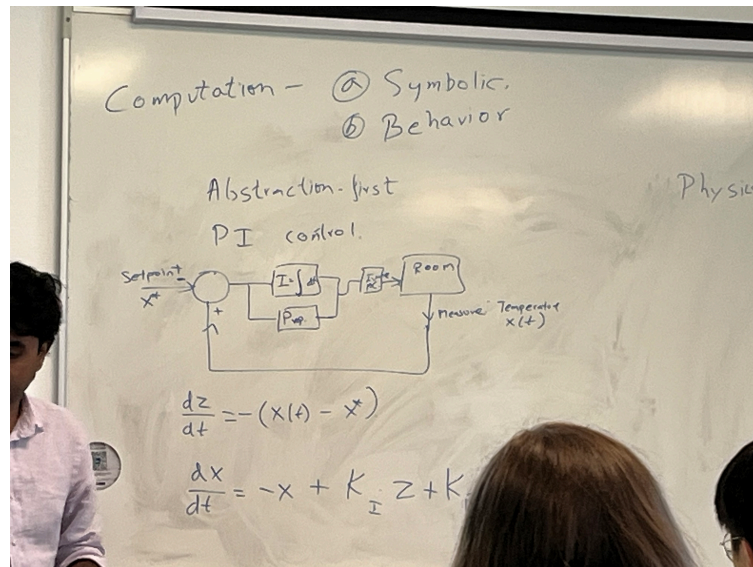 Computation - ⓐ Symbolic.
ⓑ Behavior
Abstraction-first
Physic
PI control.
Setpoint
x*
-
+
I=∫dt
P
ROOM
Measure Temperature
x(t)
dz/dt = -(x(t) - x*)
dx/dt = -x + K_I z + K